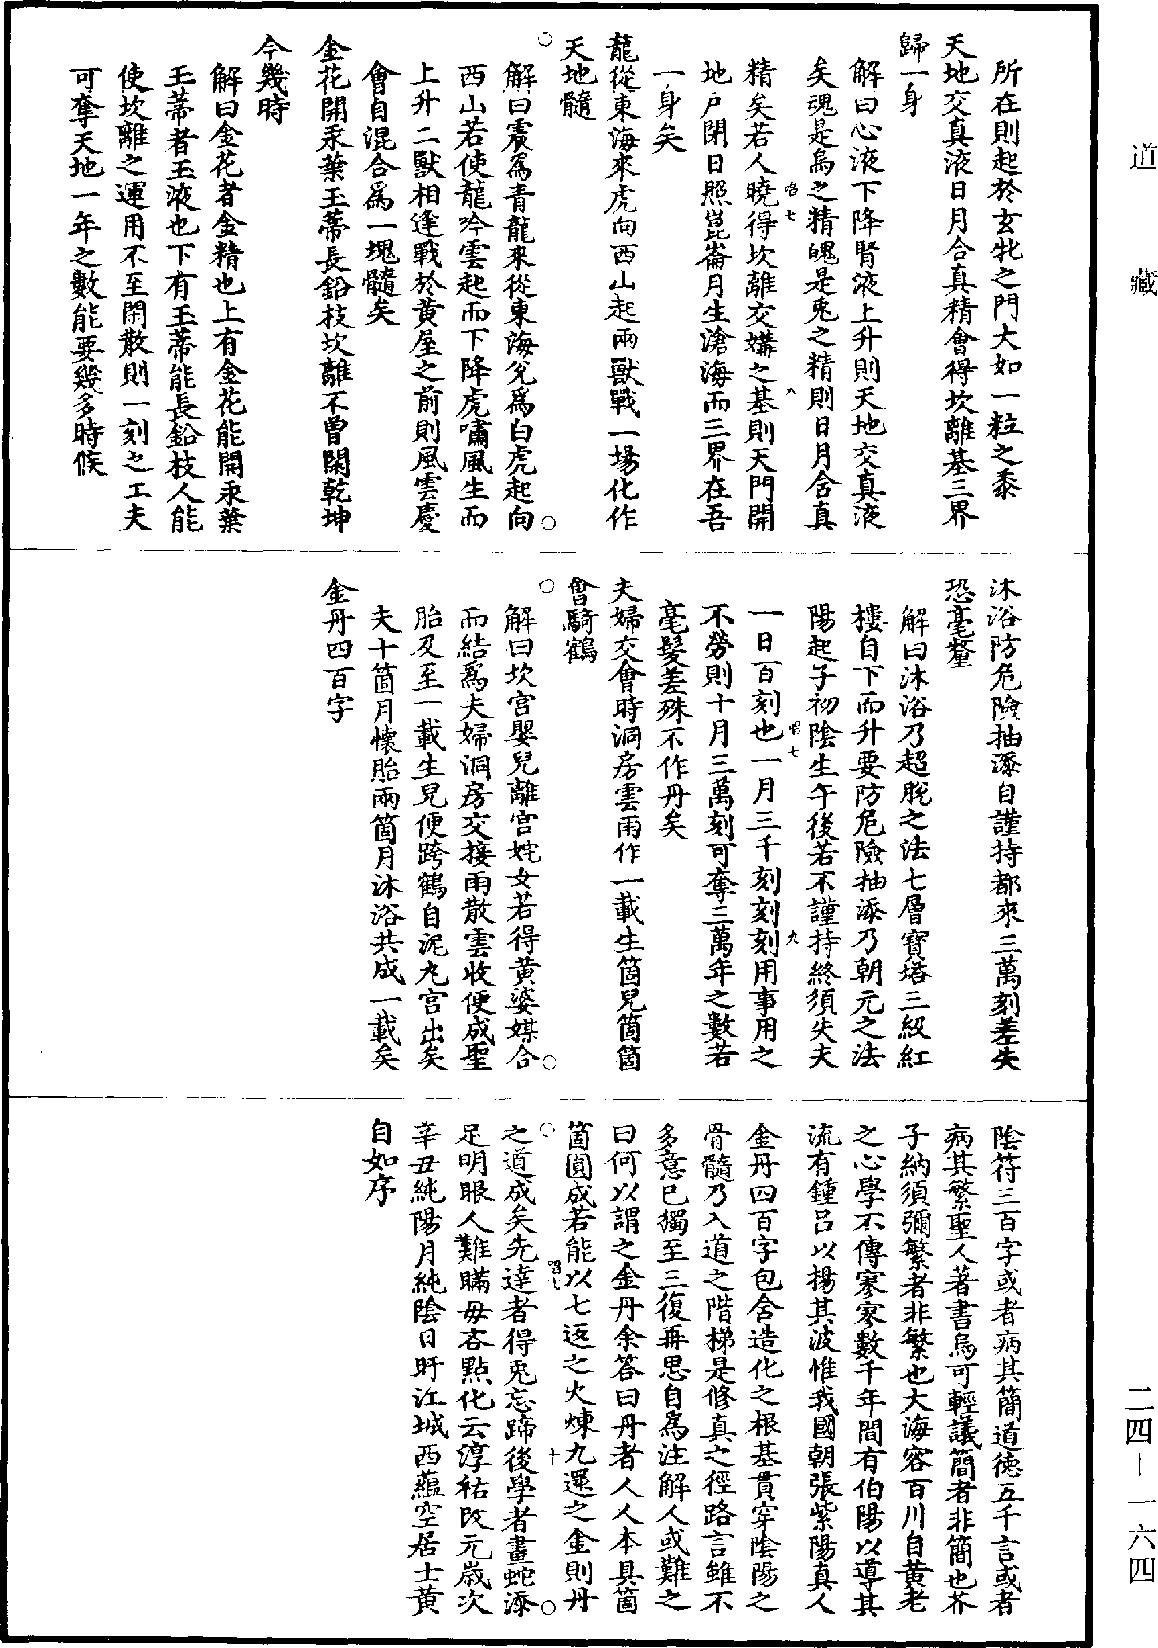 道藏
所在則起於玄牝之門大如一粒之黍
天地交真液日月合真精會得坎離基三界
歸一身
解曰心液下降腎液上升則天地交真液
矣魂是烏之精魄是兎之精則日月含真
精矣若人曉得坎離交媾之基則天門開
地戶閉日照崑崙月生滄海而三界在吾
一身矣
龍從東海來虎向西山起兩獸戰一場化作
天地髓
解曰震爲青龍來從東海兌爲白虎起向
西山若使龍吟雲起而下降虎嘯風生而
上升二獸相逢戰於黃屋之前則風雲慶
會自混合爲一塊髓矣
金花開汞葉玉蒂長鉛枝坎離不曾閑乾坤
今幾時
解曰金花者金精也上有金花能開汞葉
玉蒂者玉液也下有玉蒂能長鉛枝人能
使坎離之運用不至閑散則一刻之工夫
可奪天地一年之數能要幾多時候
沐浴防危險抽添自謹持都來三萬刻差失
恐毫釐
解曰沐浴乃超脫之法七層寶塔三級紅
樓自下而升要防危險抽添乃朝元之法
陽起子初陰生午後若不謹持終須失夫
一日百刻也一月三千刻刻刻用事用之
不勞則十月三萬刻可奪三萬年之數若
毫髮差殊不作丹矣
夫婦交會時洞房雲雨作一載生箇兒箇箇
會騎鶴
解曰坎宮嬰兒離宮姹女若得黃婆媒合
而結爲夫婦洞房交接雨散雲收便成聖
胎及至一載生兒便跨鶴自泥丸宮出矣
夫十箇月懷胎兩箇月沐浴共成一載矣
金丹四百字
陰符三百字或者病其簡道德五千言或者
病其繁聖人著書烏可輕議簡者非簡也芥
子納須彌繁者非繁也大海容百川自黃老
之心學不傳寥寥數千年間有伯陽以導其
流有鍾呂以揚其波惟我國朝張紫陽真人
金丹四百字包含造化之根基貫穿陰陽之
骨髓乃入道之階梯是修真之徑路言雖不
多意已獨至三復再思自爲注解人或難之
曰何以謂之金丹余答曰丹者人人本具箇
箇圓成若能以七返之火煉九還之金則丹
之道成矣先達者得兎忘蹄後學者畫蛇添
足明眼人難瞞毋吝點化云淳祐改元歲次
辛丑純陽月純陰日盱江城西蘊空居士黃
自如序
二四－一六四